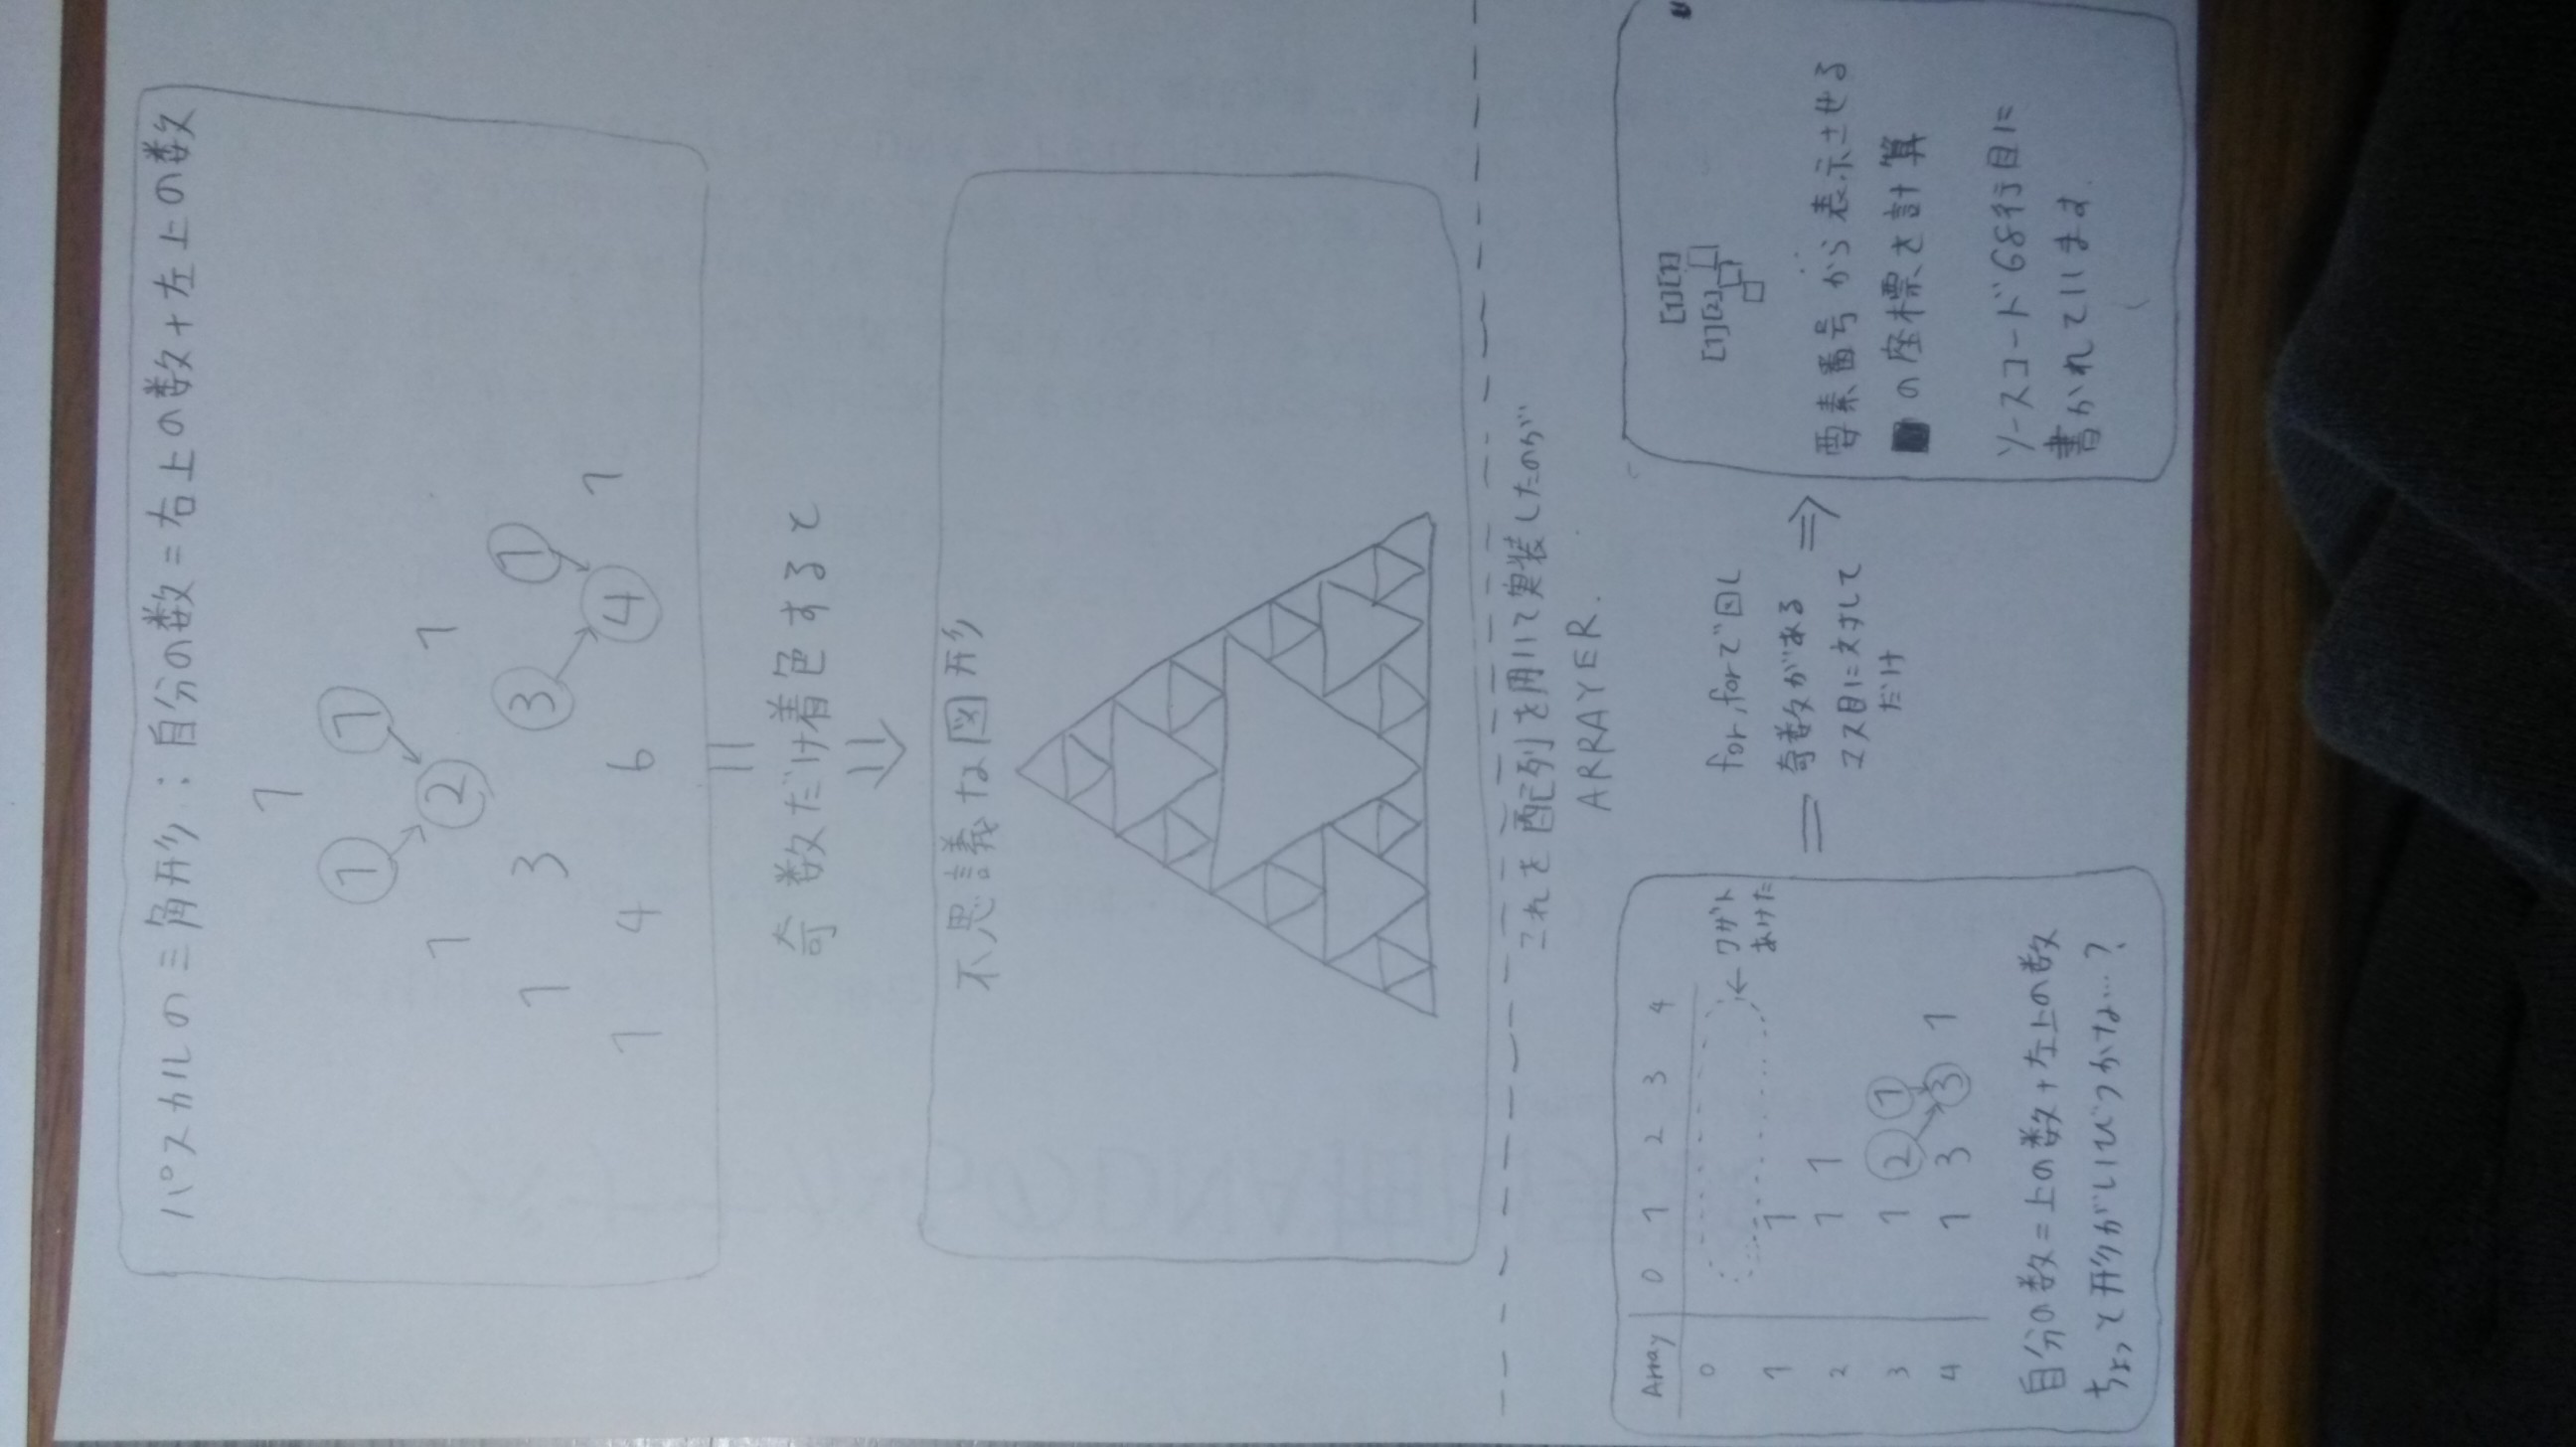 パスカルの三角形：自分の数＝右上の数＋左上の数
1
1 1
1 2 1
1 3 3 1
1 4 6 4 1
奇数だけ着色すると
不思議な図形
これを配列を用いて実装したのが
ARRAYER.
Array 0 1 2 3 4
0
←ワザト
あけた
1 1
2 1 1
3 1 2 1
4 1 3 3 1
自分の数＝上の数＋左上の数
ちょっと形がいびつかな…？
for,forで回し
奇数がある
マス目に対して
だけ
[1][1]
[1][2]
要素番号から表示させる
■の座標を計算
ソースコード68行目に
書かれています.